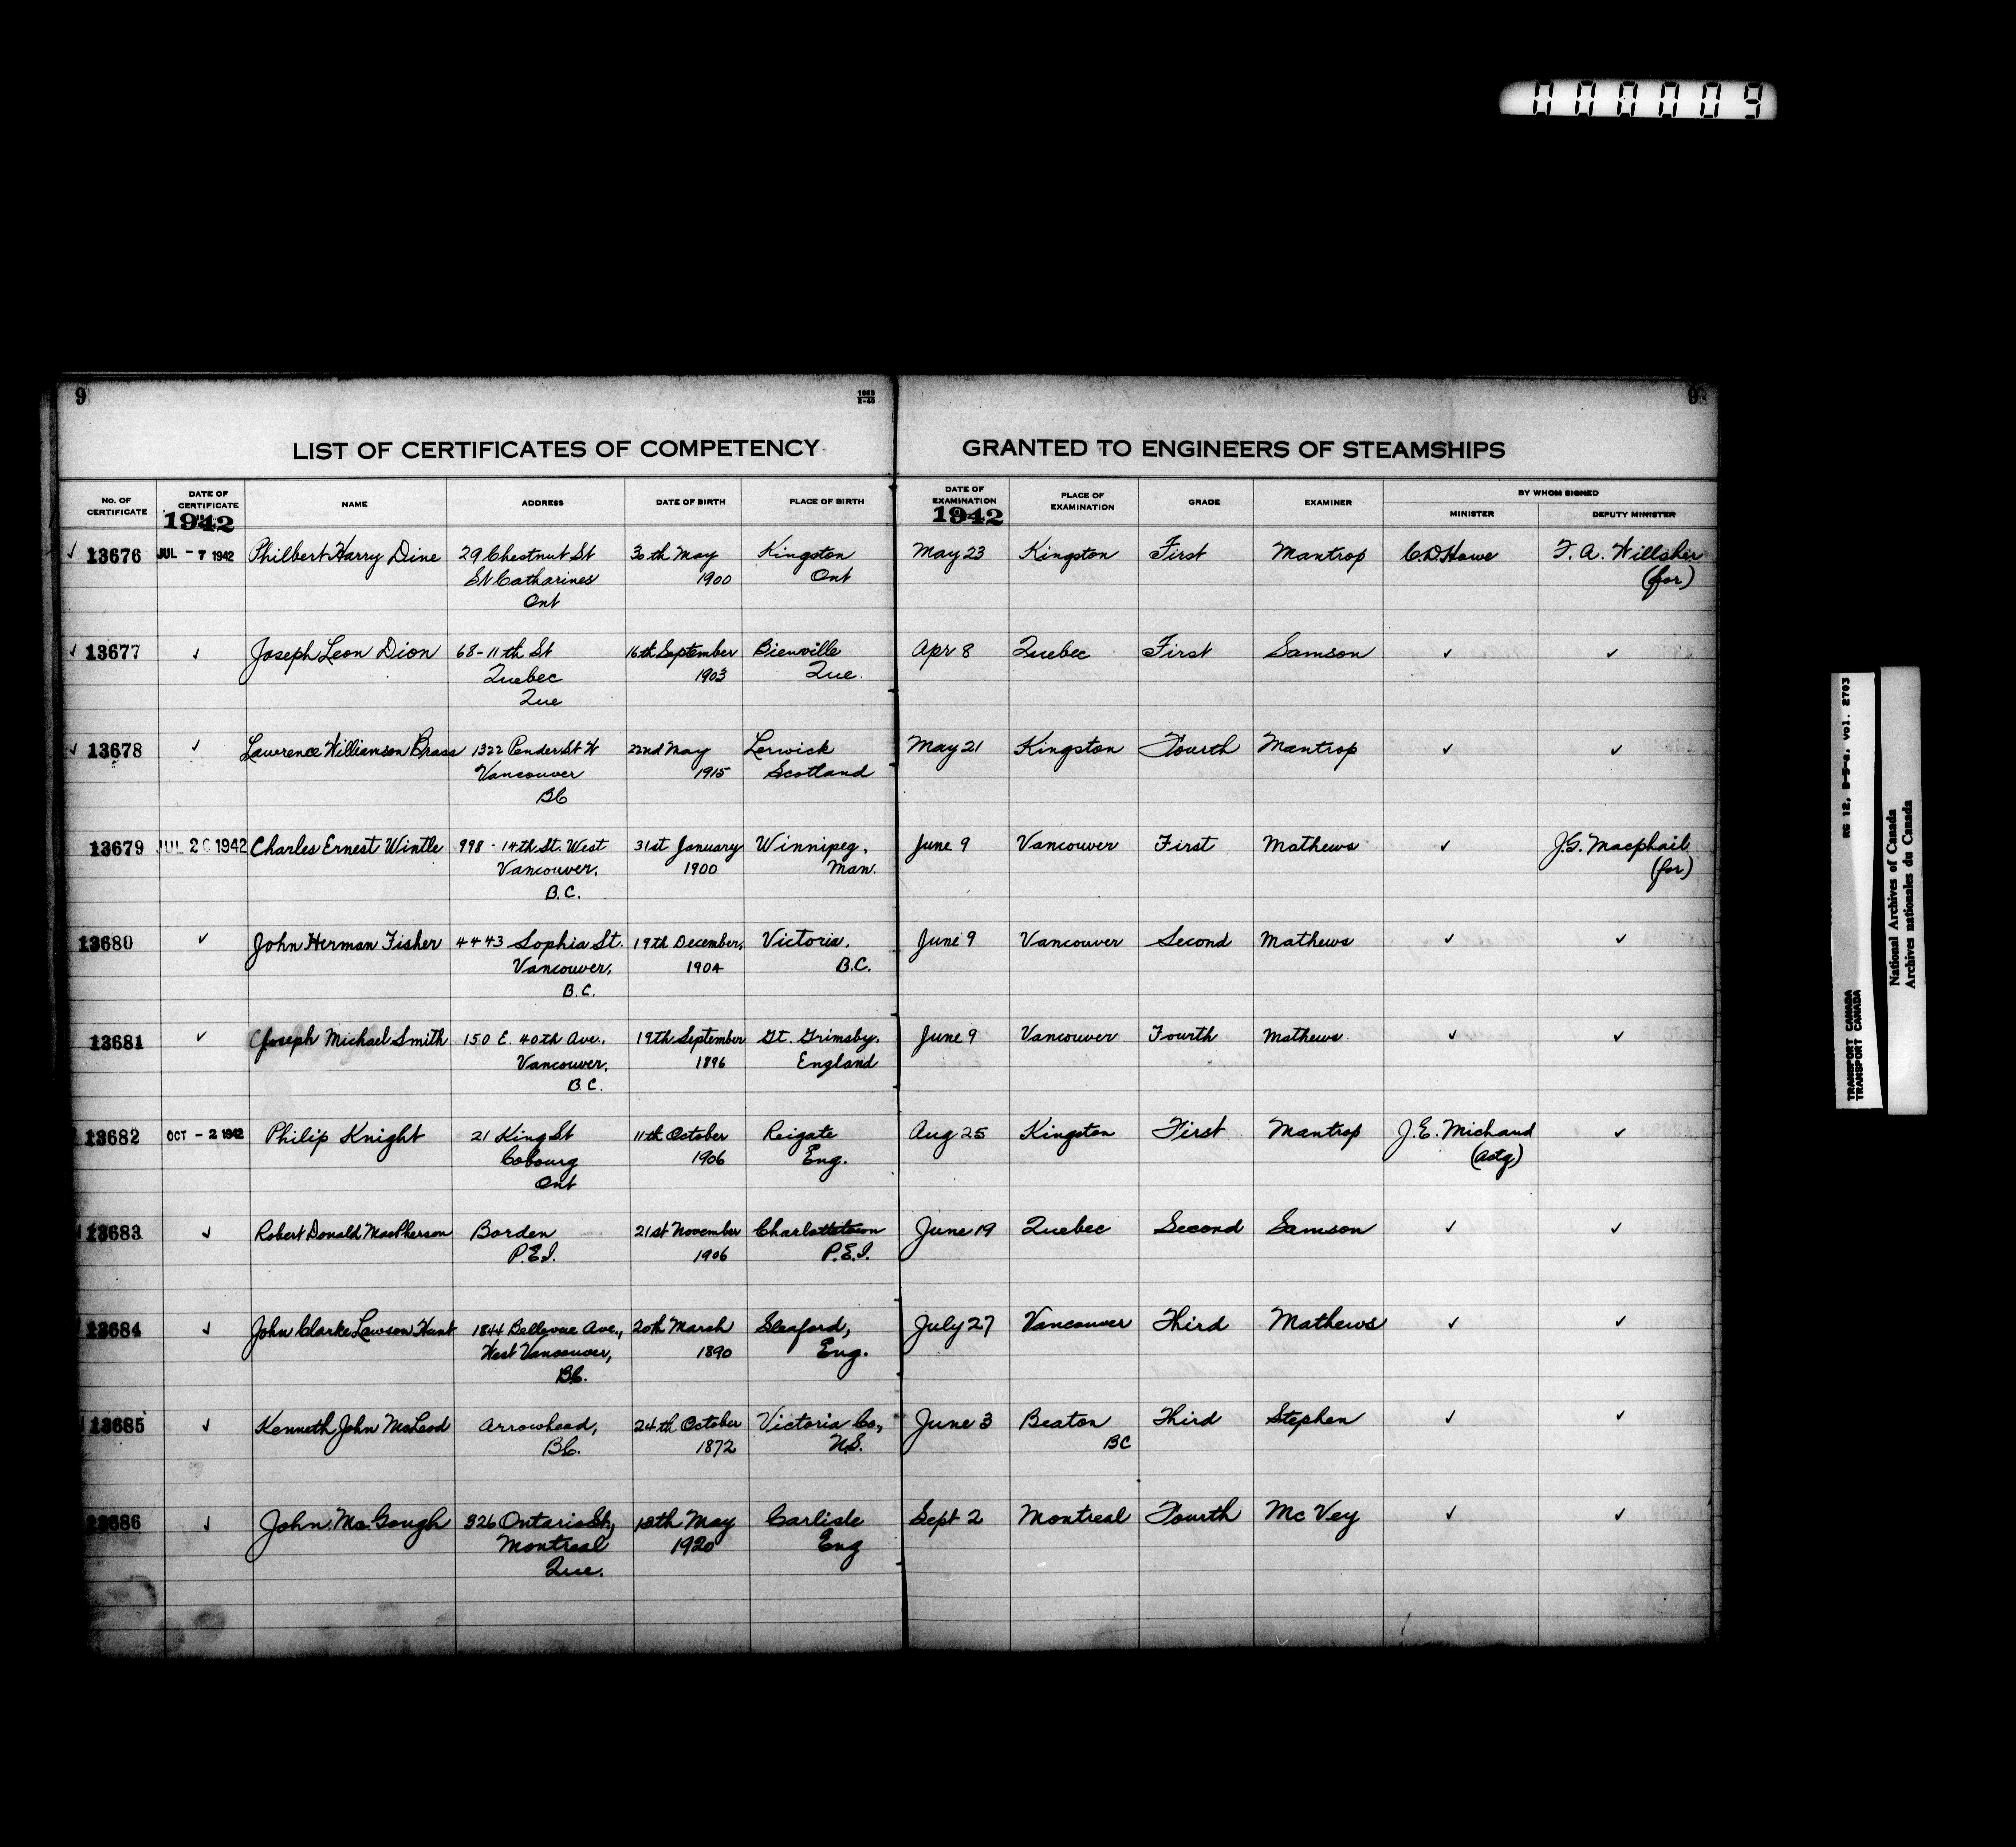 000009
9
1085
2-40
9
LIST OF CERTIFICATES OF COMPETENCY GRANTED TO ENGINEERS OF STEAMSHIPS
No. OF CERTIFICATE DATE OF CERTIFICATE NAME ADDRESS DATE OF BIRTH PLACE OF BIRTH DATE OF EXAMINATION PLACE OF EXAMINATION GRADE EXAMINER BY WHOM SIGNED
MINISTER DEPUTY MINISTER
1942 1942
✓ 13676 JUL - 7 1942 Philbert Harry Dine 29 Chestnut St 30th May Kingston May 23 Kingston First Mantrop C.D. Howe F. A. Willsher
St Catharines 1900 Ont (for)
Ont
✓ 13677 ✓ Joseph Leon Dion 68-11th St 16th September Bienville Apr 8 Quebec First Samson ✓ ✓
Quebec 1903 Que.
Que
✓ 13678 ✓ Lawrence Williamson Brass 1322 Pender St W 22nd May Lerwick May 21 Kingston Fourth Mantrop ✓ ✓
Vancouver 1915 Scotland
BC
13679 JUL 20 1942 Charles Ernest Wintle 998 - 14th St. West 31st January Winnipeg, June 9 Vancouver First Mathews ✓ J.G. Macphail
Vancouver, 1900 Man. (for)
B.C.
13680 ✓ John Herman Fisher 4443 Sophia St. 19th December, Victoria, June 9 Vancouver Second Mathews ✓ ✓
Vancouver, 1904 B.C.
B.C.
13681 ✓ Joseph Michael Smith 150 E. 40th Ave., 19th September Gt. Grimsby, June 9 Vancouver Fourth Mathews ✓ ✓
Vancouver, 1896 England
B.C.
13682 OCT - 2 1942 Philip Knight 21 King St 11th October Reigate Aug 25 Kingston First Mantrop J.E. Michaud ✓
Cobourg 1906 Eng. (actg)
Ont
13683 ✓ Robert Donald MacPherson Borden 21st November Charlottetown June 19 Quebec Second Samson ✓ ✓
P.E.I. 1906 P.E.I.
13684 ✓ John Clarke Lawson Hunt 1844 Bellevue Ave., 20th March Sleaford, July 27 Vancouver Third Mathews ✓ ✓
West Vancouver, 1890 Eng.
B.C.
13685 ✓ Kenneth John McLeod Arrowhead, 24th October Victoria Co., June 3 Beaton Third Stephen ✓ ✓
B.C. 1872 N.S. BC
13686 ✓ John McGough 326 Ontario St., 18th May Carlisle Sept 2 Montreal Fourth Mc Vey ✓ ✓
Montreal 1920 Eng
Que.
RG 12, B-5-a, vol. 2703
TRANSPORT CANADA
TRANSPORT CANADA
National Archives of Canada
Archives nationales du Canada